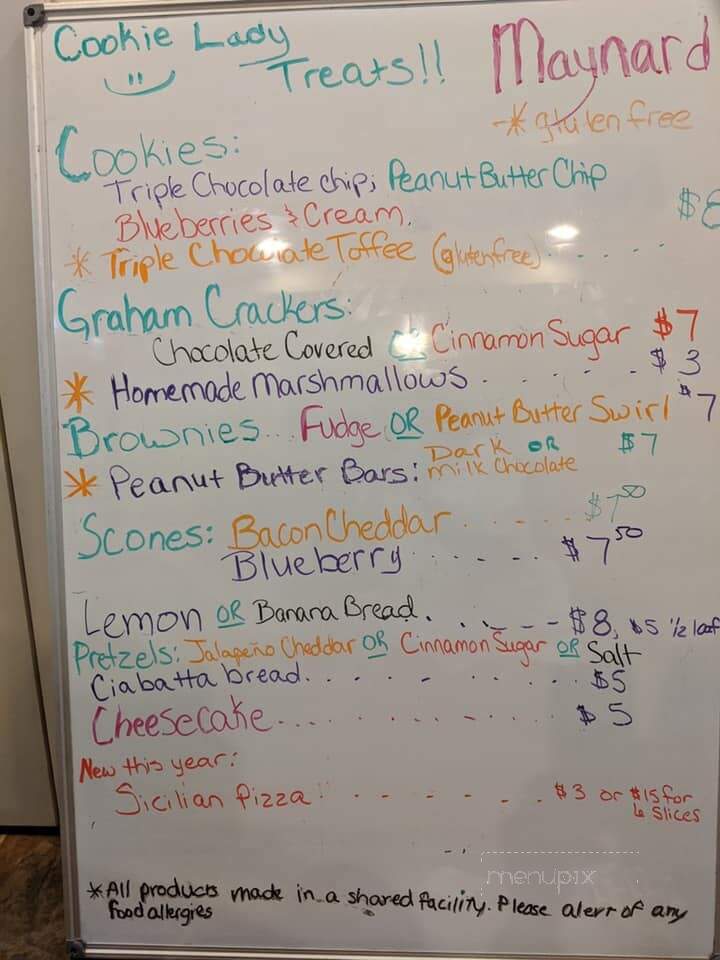 Cookie Lady
Treats!!
Maynard
* gluten free
Cookies:
Triple Chocolate chip; Peanut Butter Chip
Blueberries & Cream.
* Triple Chocolate Toffee (gluten free). . . . .
Graham Crackers:
Chocolate Covered OR Cinnamon Sugar $7
* Homemade Marshmallows. . . . - $3
Brownies... Fudge OR Peanut Butter Swirl $7
* Peanut Butter Bars: Dark OR $7
Milk Chocolate
Scones: Bacon Cheddar. . . - . . . $7 50
Blueberry. . . . - - . $7 50
Lemon OR Banana Bread. . - . - - $8, $5 1/2 loaf
Pretzels: Jalapeño Cheddar OR Cinnamon Sugar OR Salt
Ciabatta bread. . . - . . . . $5
Cheesecake. . . . . . . . . $5
New this year:
Sicilian Pizza! - - - - - . . $3 or $15 for
6 Slices
*All products made in a shared facility. Please alert of any
food allergies
menupix